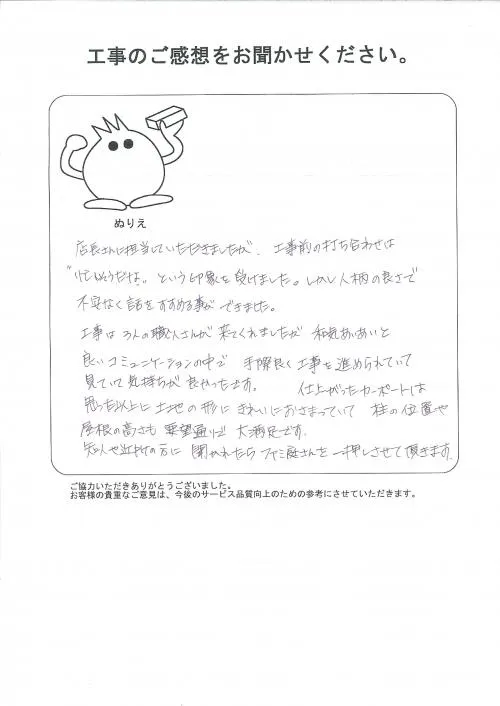 工事のご感想をお聞かせください。
ぬりえ
店長さんに担当していただきましたが、工事前の打ち合わせは
"忙しそうだな。"という印象を受けました。しかし人柄の良さで
不安なく話をすすめる事ができました。
工事は3人の職人さんが来てくれましたが 和気あいあいと
良いコミュニケーションの中で 手際良く工事を進められていて
見ていて気持ちが良かったです。 仕上がったカーポートは
思った以上に土地の形にきれいにおさまっていて 柱の位置や
屋根の高さも要望通りで大満足です。
知人や近所の方に聞かれたらファミ庭さんを一押しさせて頂きます。
ご協力いただきありがとうございました。
お客様の貴重なご意見は、今後のサービス品質向上のための参考にさせていただきます。